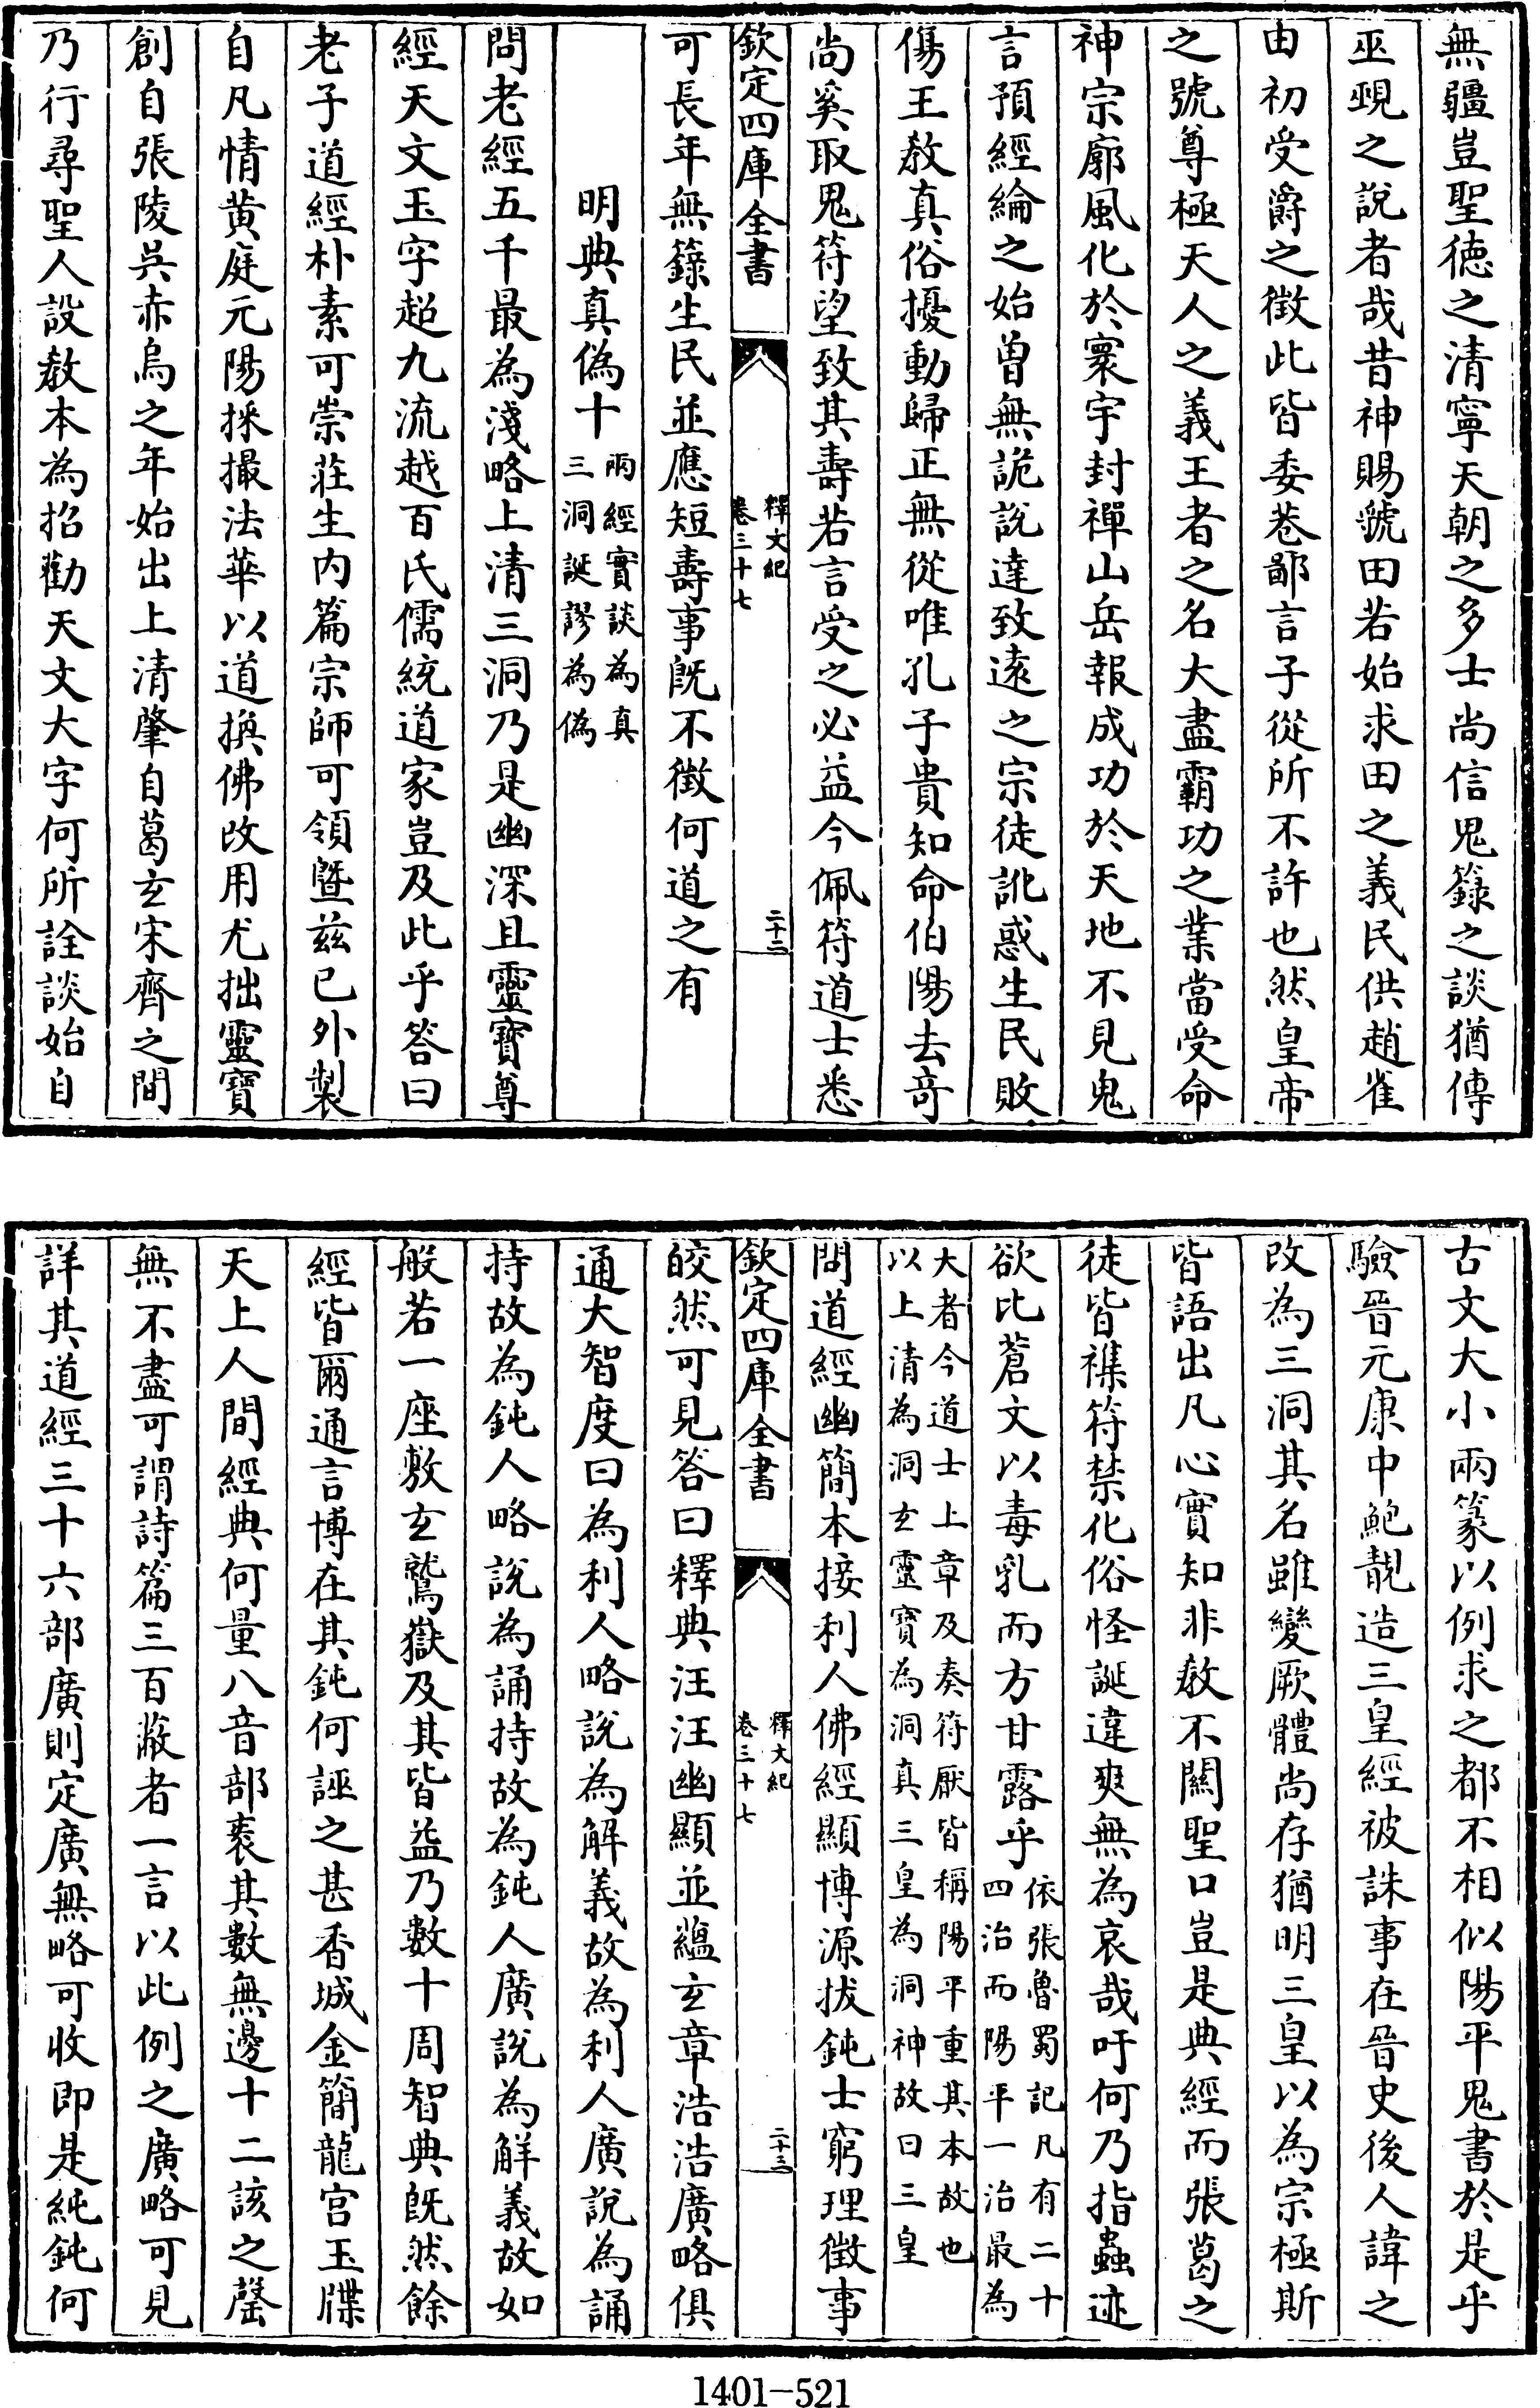 無疆豈聖德之清寧天朝之多士尚信鬼籙之談猶傳
巫覡之說者哉昔神賜虢田若始求田之義民供趙雀
由初受爵之徵此皆委巷鄙言子從所不許也然皇帝
之號尊極天人之義王者之名大盡霸功之業當受命
神宗廓風化於寰宇封禪山岳報成功於天地不見鬼
言預經綸之始曽無詭說達致逺之宗徒訛惑生民敗
傷王教真俗擾動歸正無從唯孔子貴知命伯陽去奇
尚奚取鬼符望致其壽若言受之必益今佩符道士悉
欽定四庫全書
釋文紀
卷三十七
二十二
可長年無籙生民並應短壽事既不徴何道之有
明典真偽十
兩經實談為真
三洞誕謬為偽
問老經五千最為淺略上清三洞乃是幽深且靈寶尊
經天文玉字超九流越百氏儒統道家豈及此乎答曰
老子道經朴素可崇莊生内篇宗師可領暨兹已外製
自凡情黄庭元陽採撮法華以道換佛改用尤拙靈寶
創自張陵吳赤烏之年始出上清肇自葛玄宋齊之間
乃行尋聖人設教本為招勸天文大字何所詮談始自
古文大小兩篆以例求之都不相似陽平鬼書於是乎
驗晉元康中鮑靚造三皇經被誅事在晉史後人諱之
改為三洞其名雖變厥體尚存猶明三皇以為宗極斯
皆語出凡心實知非教不關聖口豈是典經而張葛之
徒皆襍符禁化俗怪誕違爽無為哀哉吁何乃指蟲迹
欲比蒼文以毒乳而方甘露乎
依張魯蜀記凡有二十
四治而陽平一治最為
大者今道士上章及奏符厭皆稱陽平重其本故也
以上清為洞玄靈寶為洞真三皇為洞神故曰三皇
問道經幽簡本接利人佛經顯博源拔鈍士窮理徴事
欽定四庫全書
釋文紀
卷三十七
二十三
皎然可見答曰釋典汪汪幽顯並蘊玄章浩浩廣略俱
通大智度曰為利人略說為解義故為利人廣說為誦
持故為鈍人略說為誦持故為鈍人廣說為解義故如
般若一座敷玄鷲嶽及其皆益乃數十周智典既然餘
經皆爾通言博在其鈍何誣之甚香城金簡龍宫玉牒
天上人間經典何量八音部袠其數無邊十二該之罄
無不盡可謂詩篇三百蔽者一言以此例之廣略可見
詳其道經三十六部廣則定廣無略可收即是純鈍何
1401-521